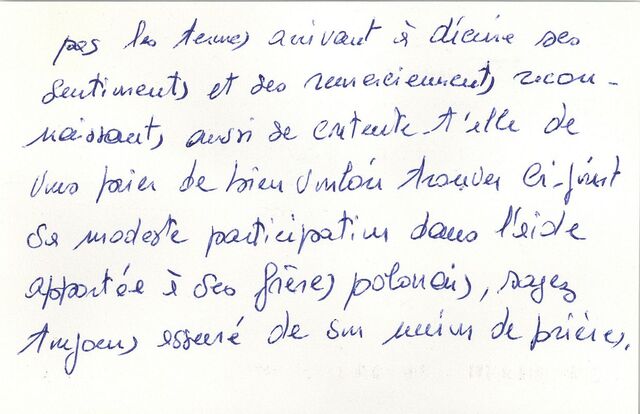 pas les termes arrivant à décrire ses
sentiments et ses remerciements recon-
naissants, aussi se contente-t'elle de
vous prier de bien vouloir trouver ci-joint
sa modeste participation dans l'aide
apportée à ses frères polonais, soyez
toujours assuré de son union de prières.